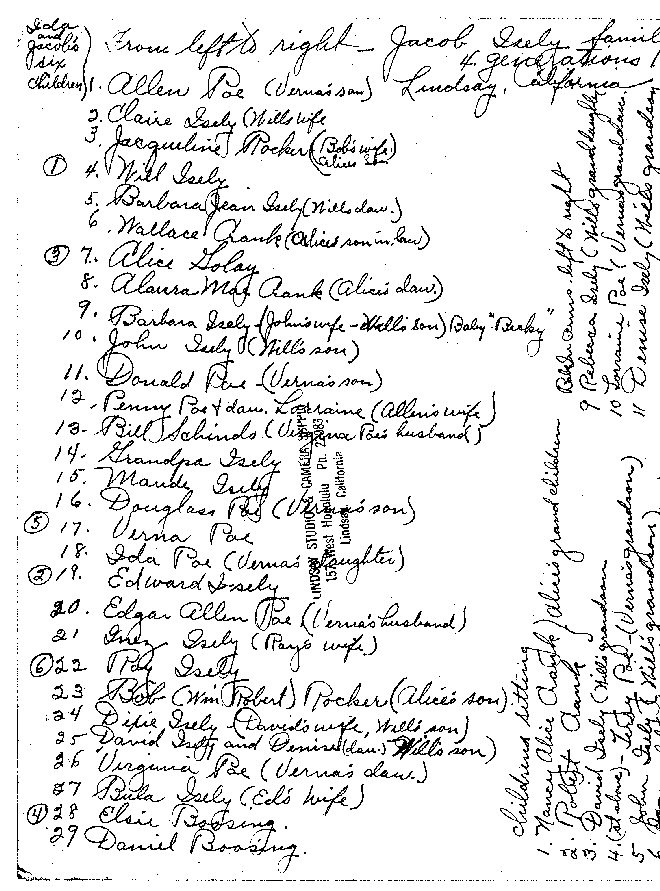 Ida
and
Jacob's
six
children)
From left to right - Jacob Isely famil
4 generations
Lindsay, California
1. Allen Poe (Verna's son)
2. Claire Isely (Will's wife
3. Jacqueline Rocker (Bob's wife)
Alice's son
① 4. Will Isely
5. Barbara Jean Isely (Will's dau.)
6. Wallace Rank (Alice's son in law)
③ 7. Alice Golay
8. Alaura Mae Rank (Alice's dau.)
9. Barbara Isely (John's wife - Will's son) Baby "Becky"
10. John Isely (Will's son)
11. Donald Poe - (Verna's son)
12. Penny Poe + dau. Lorraine (Allen's wife)
13. Bill Schinds (Virginia Poe's husband)
14. Grandpa Isely
15. Maude Isely
16. Douglass Poe (Verna's son)
⑤ 17. Verna Poe
18. Ida Poe (Verna's daughter)
② 19. Edward Isely
20. Edgar Allen Poe (Verna's husband)
21 Inez Isely (Ray's wife)
⑥ 22 Ray Isely
23 Bob (Wm Robert) Rocker (Alice's son)
24 Dixie Isely - (David's wife, Will's son)
25 David Isely and Denise (dau.) Will's son)
26 Virginia Poe (Verna's dau.)
27 Bula Isely (Ed's wife)
④ 28 Elsie Boosing.
29 Daniel Boosing.
LINDSAY STUDIO & CAMERA
157 West Honolulu Ph. 2
Lindsay, California
Babes in arms - left to right
9 Rebecca Isely (Will's granddaughter
10 Lorraine Poe (Verna's granddau.
11 Denise Isely (Will's grandson
Childrens sitting
1. Nancy Alice Rank) Alice's grand children
2. Robert Rank
3. David Isely (Will's grandson
4. (at alone) - Poe - (Verna's grandson)
5 John Isely (Will's grandson)
6